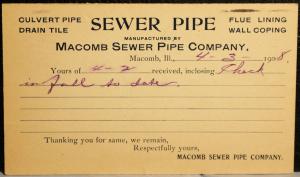 CULVERT PIPE
DRAIN TILE
SEWER PIPE
FLUE LINING
WALL COPING
MANUFACTURED BY
MACOMB SEWER PIPE COMPANY,
Macomb, Ill., 4-3- 1908
Yours of 4-2 received, inclosing Check
in full to date.
Thanking you for same, we remain,
Respectfully yours,
MACOMB SEWER PIPE COMPANY.